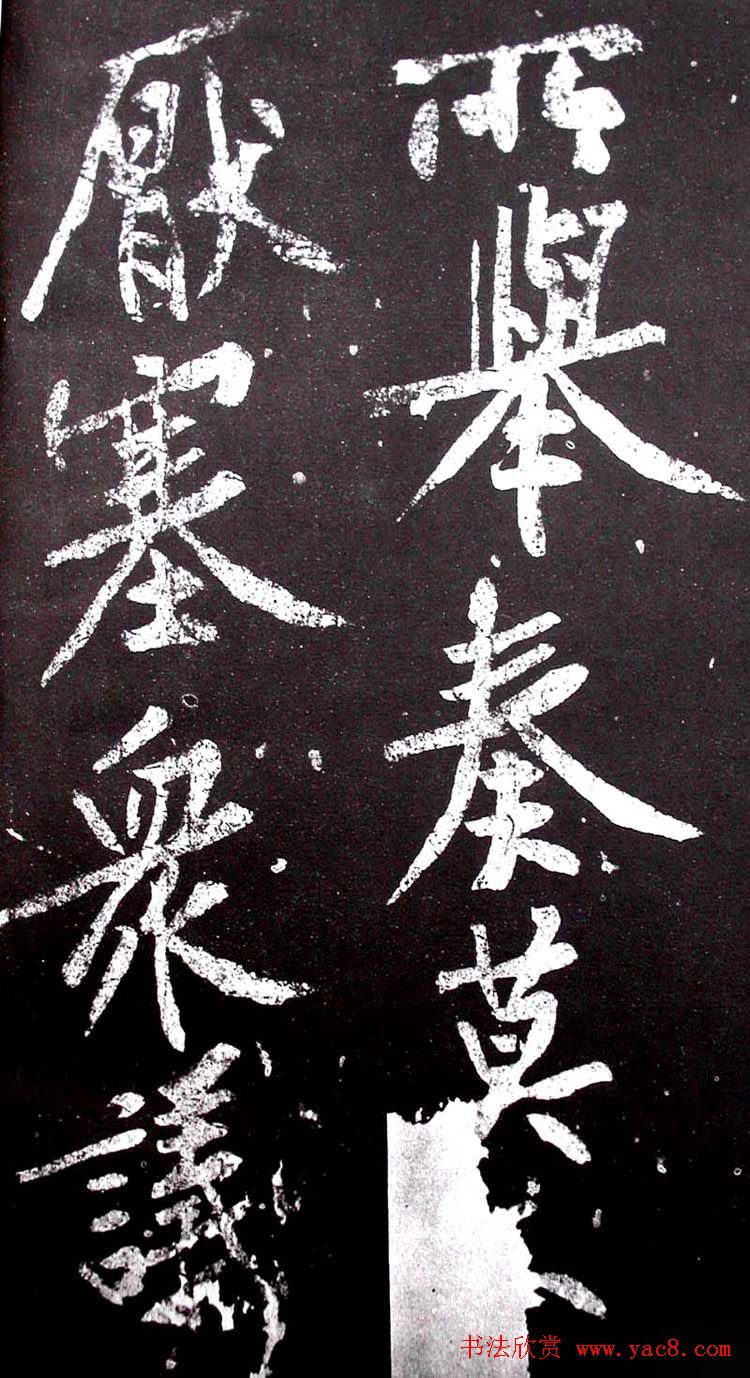 所舉奏莫
厭塞衆議
书法欣赏 www.yac8.com